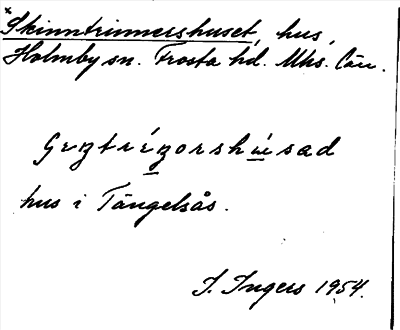 × Skinntrinnershuset, hus,
Holmby sn. Frosta hd. Mhs. Län.
hus i Tängelsås.
I. Ingers 1954.